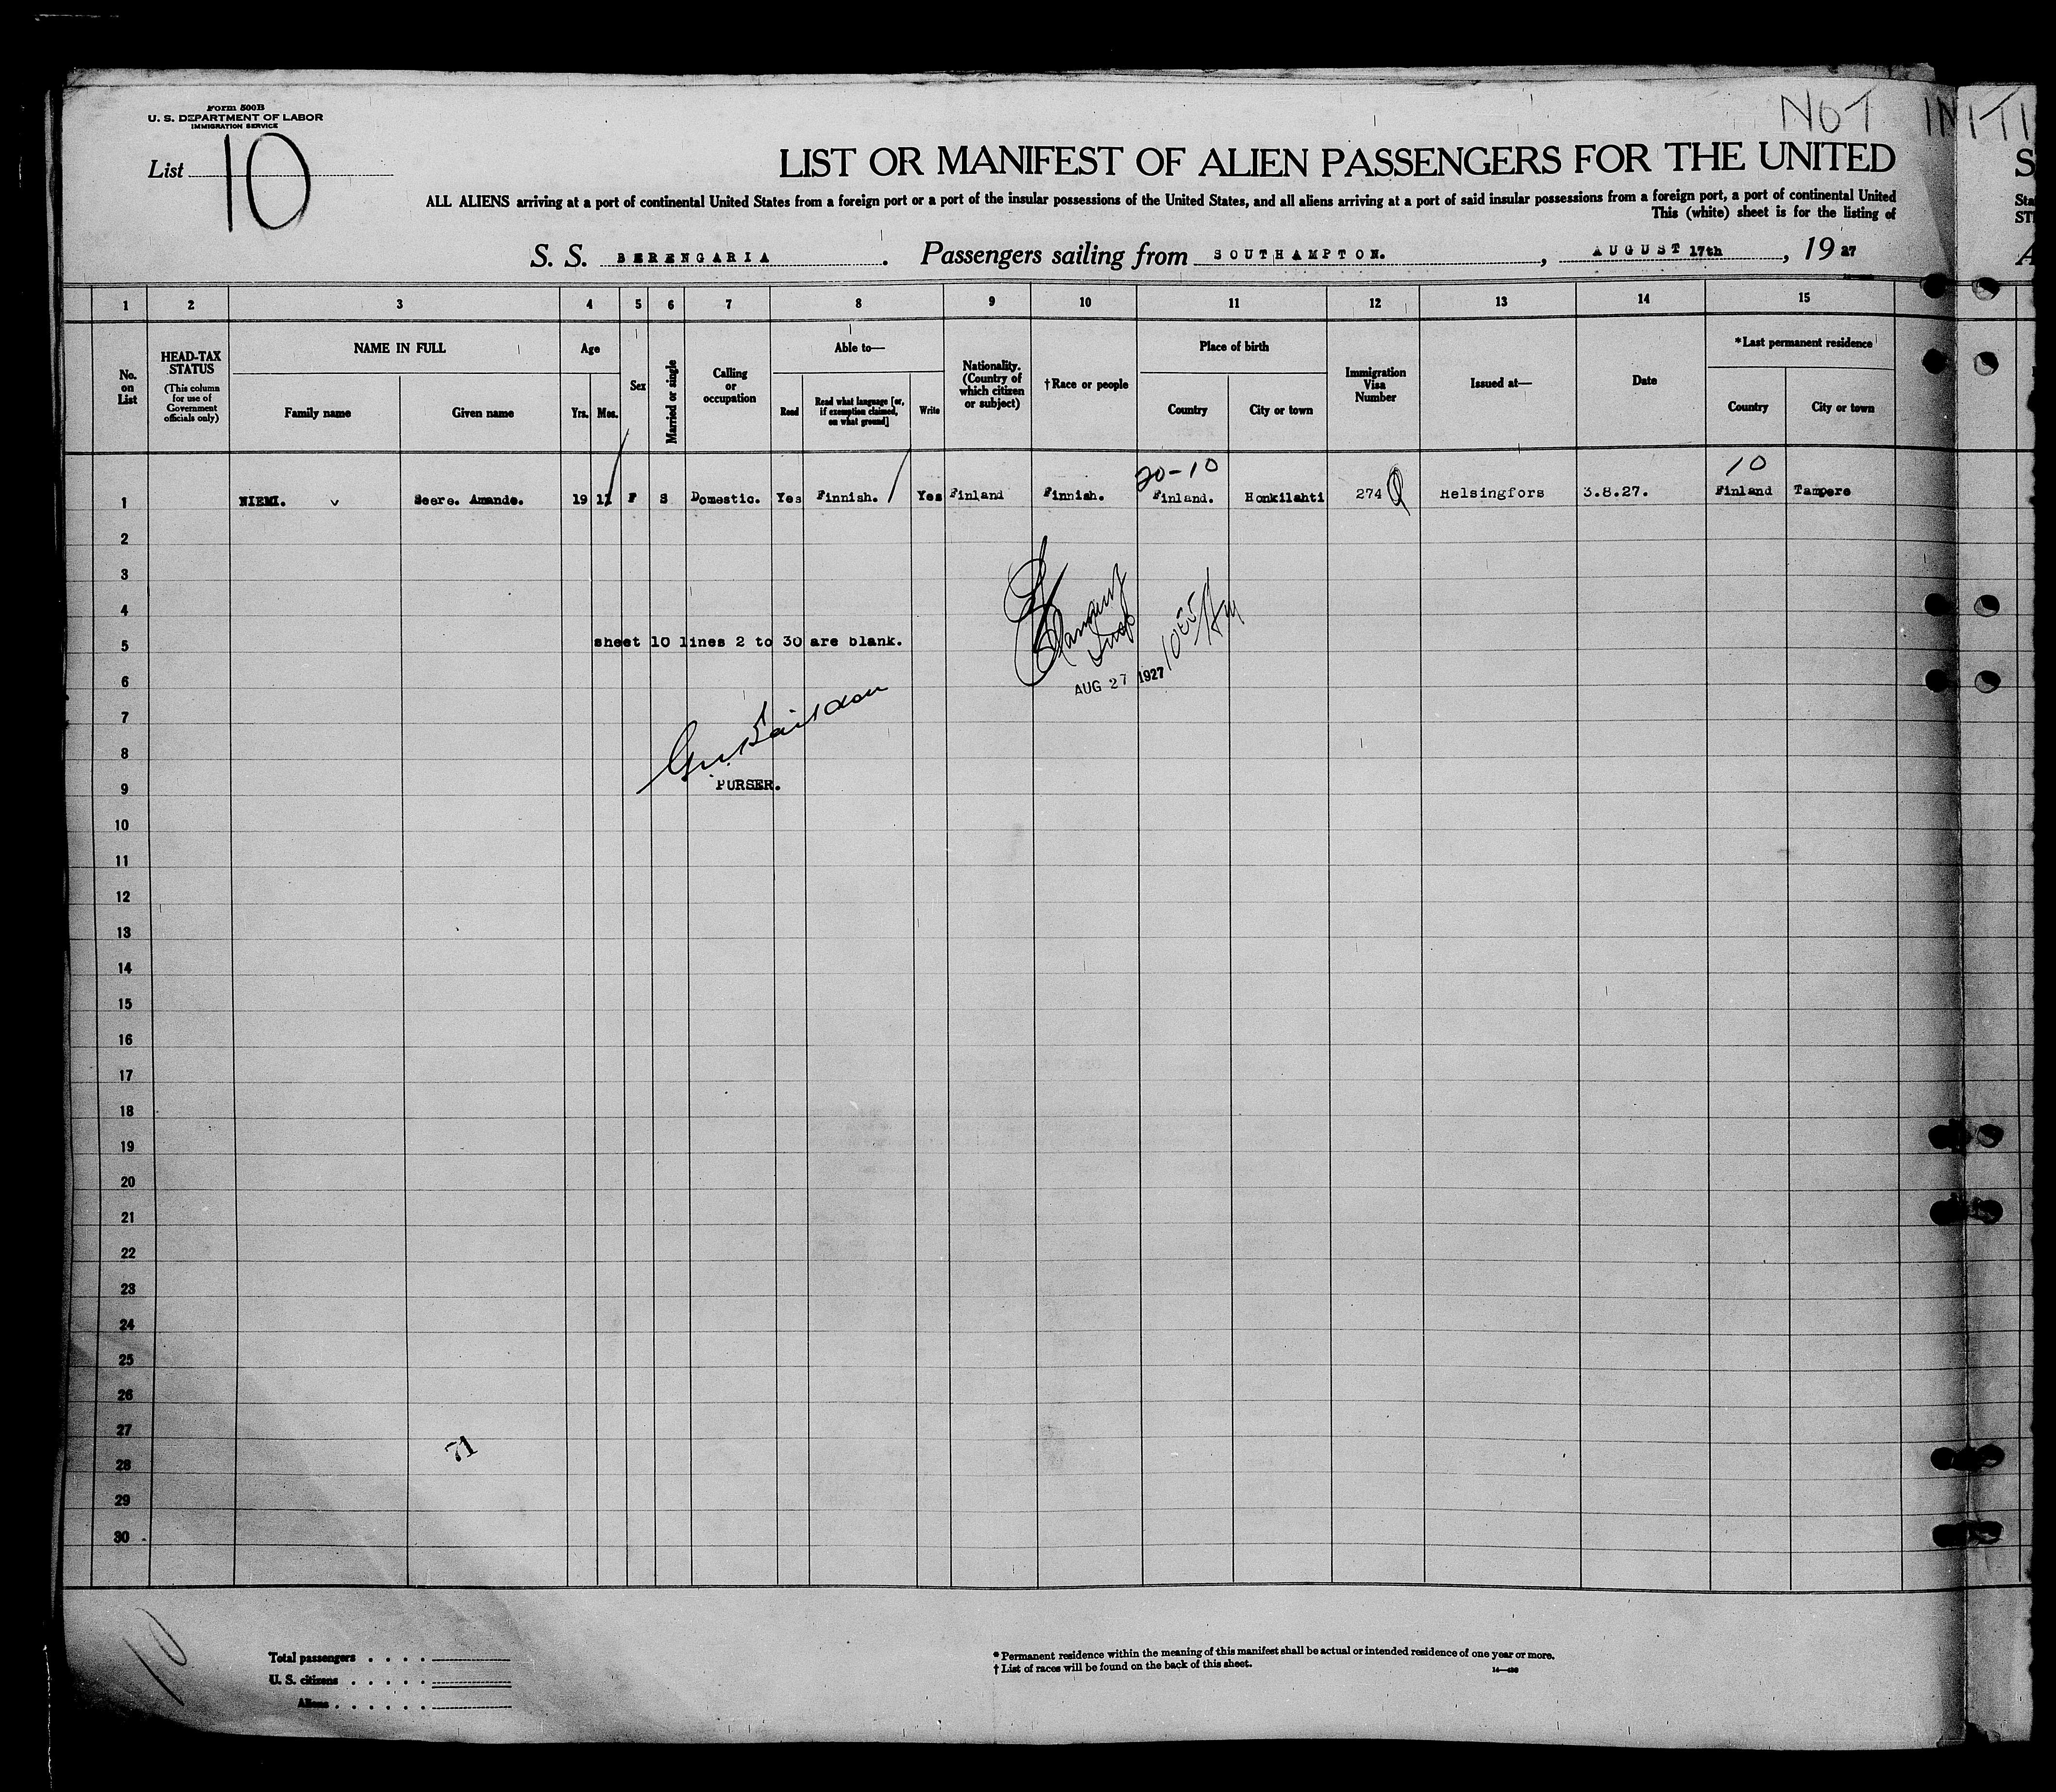 NOT INITI
Form 500B
U. S. DEPARTMENT OF LABOR
IMMIGRATION SERVICE
List 10
LIST OR MANIFEST OF ALIEN PASSENGERS FOR THE UNITED
S
ALL ALIENS arriving at a port of continental United States from a foreign port or a port of the insular possessions of the United States, and all aliens arriving at a port of said insular possessions from a foreign port, a port of continental United
Sta
This (white) sheet is for the listing of
ST
S. S. BERENGARIA. Passengers sailing from SOUTHAMPTON., AUGUST 17th, 19 27
A
1 2 3 4 5 6 7 8 9 10 11 12 13 14 15
No. on List
HEAD-TAX STATUS
(This column for use of Government officials only)
NAME IN FULL
Family name
Given name
Age
Yrs.
Mos.
Sex
Married or single
Calling or occupation
Able to—
Read
Read what language [or, if exemption claimed, on what ground]
Write
Nationality. (Country of which citizen or subject)
†Race or people
Place of birth
Country
City or town
Immigration Visa Number
Issued at—
Date
*Last permanent residence
Country
City or town
20-10
10
1 NIEMI. v Seere. Amande. 19 11 F S Domestic. Yes Finnish. Yes Finland Finnish. Finland. Honkilahti 274 Helsingfors 3.8.27. Finland Tampere
2
3
4
5
sheet 10 lines 2 to 30 are blank.
6
AUG 27 1927
7
8
9
PURSER.
10
11
12
13
14
15
16
17
18
19
20
21
22
23
24
25
26
27
71
28
29
30
10
Total passengers . . . .
U. S. citizens . . . . .
Aliens . . . . . .
* Permanent residence within the meaning of this manifest shall be actual or intended residence of one year or more.
† List of races will be found on the back of this sheet.